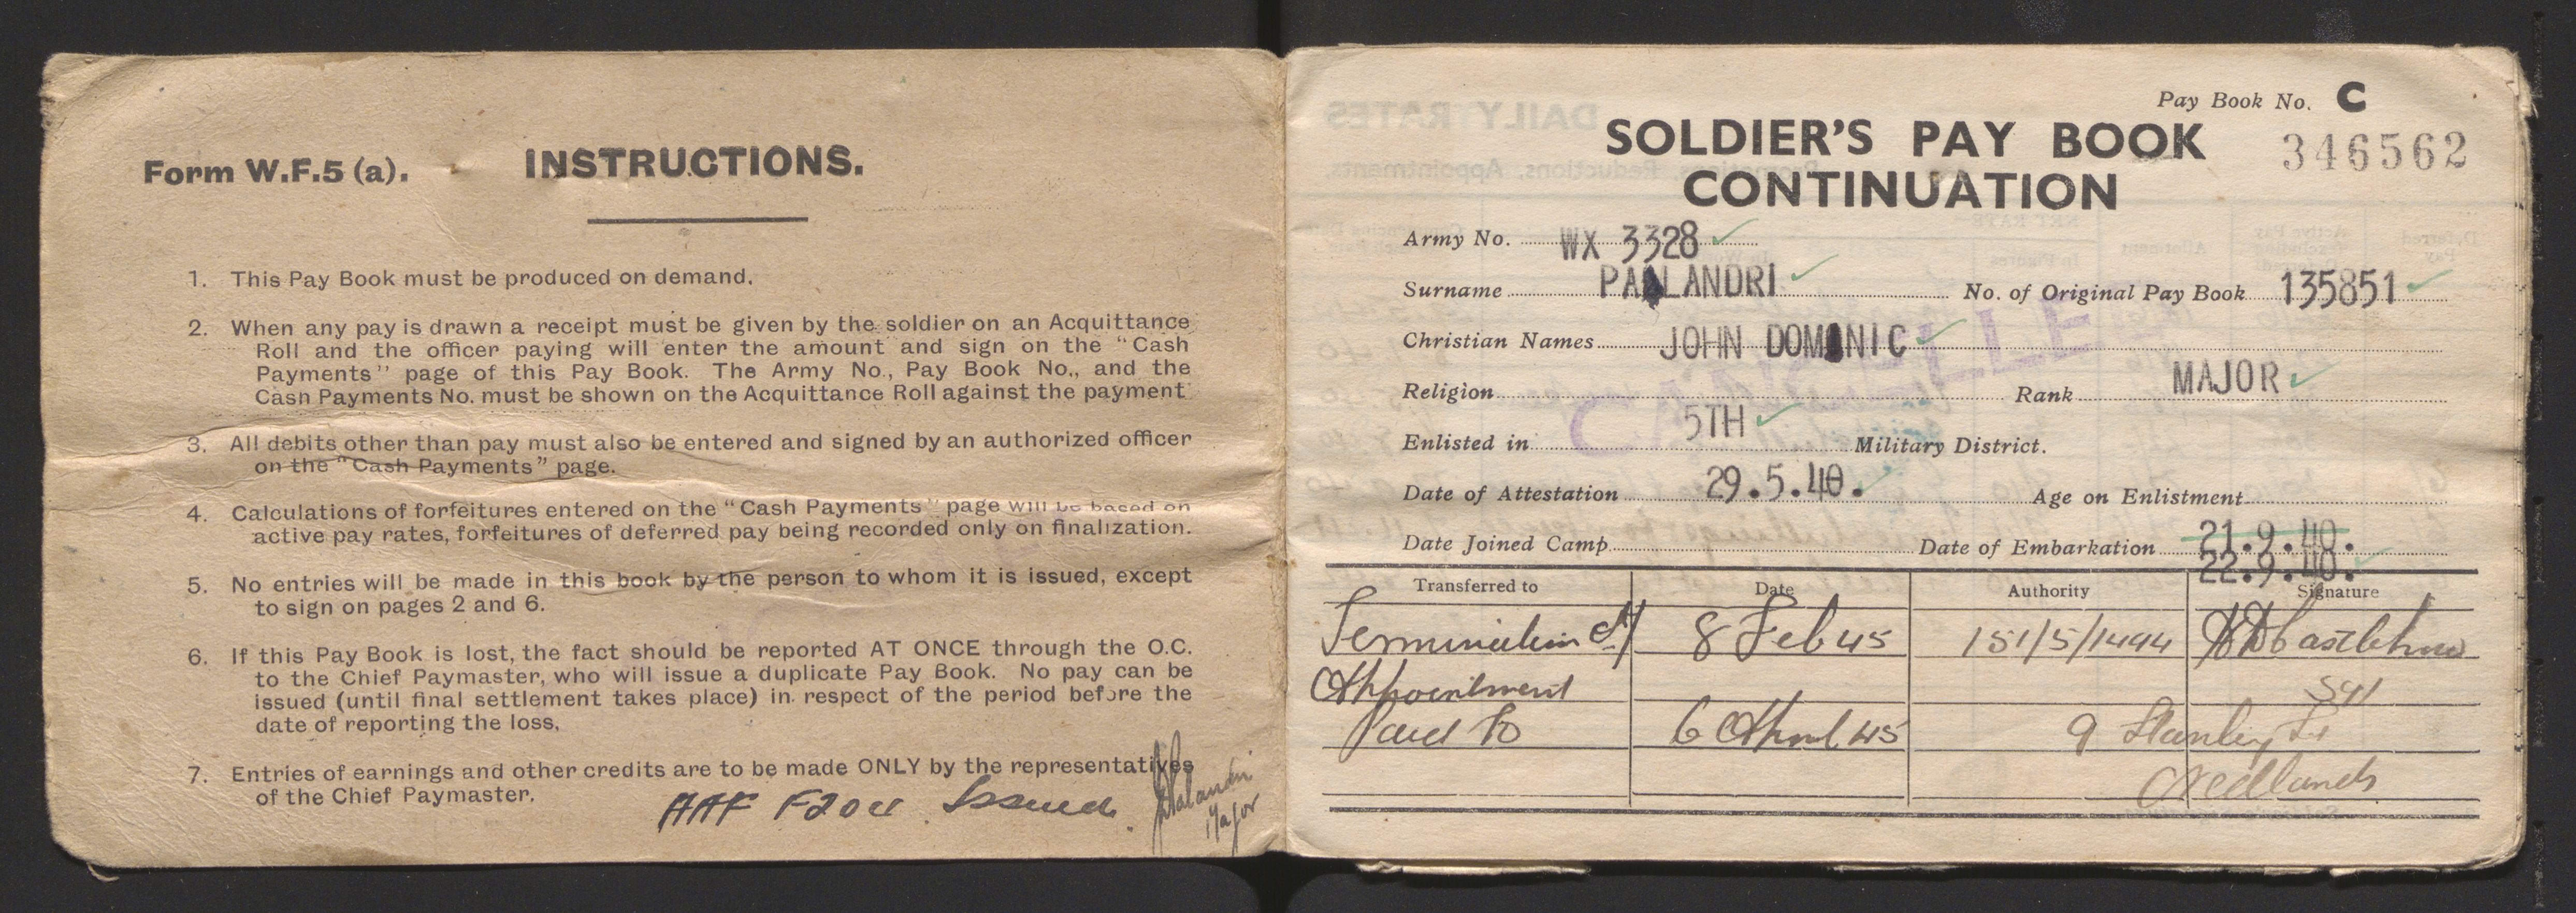 Form W.F.5 (a). INSTRUCTIONS.
1. This Pay Book must be produced on demand.
2. When any pay is drawn a receipt must be given by the soldier on an Acquittance
Roll and the officer paying will enter the amount and sign on the "Cash
Payments" page of this Pay Book. The Army No., Pay Book No., and the
Cash Payments No. must be shown on the Acquittance Roll against the payment
3. All debits other than pay must also be entered and signed by an authorized officer
on the "Cash Payments" page.
4. Calculations of forfeitures entered on the "Cash Payments" page will be based on
active pay rates, forfeitures of deferred pay being recorded only on finalization.
5. No entries will be made in this book by the person to whom it is issued, except
to sign on pages 2 and 6.
6. If this Pay Book is lost, the fact should be reported AT ONCE through the O.C.
to the Chief Paymaster, who will issue a duplicate Pay Book. No pay can be
issued (until final settlement takes place) in respect of the period before the
date of reporting the loss.
7. Entries of earnings and other credits are to be made ONLY by the representatives
of the Chief Paymaster.
AAF F20a Issued.
Major
Pay Book No. C
SOLDIER'S PAY BOOK 346562
CONTINUATION
Army No. WX 3328
Surname PALANDRI No. of Original Pay Book 135851
Christian Names JOHN DOMINIC
Religion Rank MAJOR
Enlisted in 5TH Military District.
Date of Attestation 29.5.40. Age on Enlistment
Date Joined Camp Date of Embarkation 21.9.40.
22.9.40.
Transferred to Date Authority Signature
Termination of 8 Feb 45 151/5/1494
Appointment Sgt
Paid to 6 April 45 9 Stanley St
Nedlands